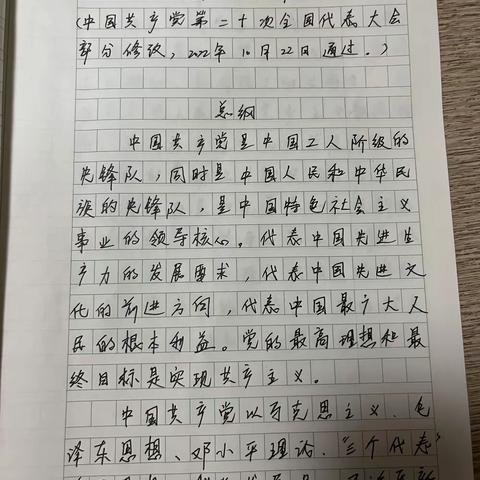 （中国共产党第二十次全国代表大会
部分修改，2022年10月22日通过。）
总纲
中国共产党是中国工人阶级的
先锋队，同时是中国人民和中华民
族的先锋队，是中国特色社会主义
事业的领导核心。代表中国先进生
产力的发展要求，代表中国先进文
化的前进方向，代表中国最广大人
民的根本利益。党的最高理想和最
终目标是实现共产主义。
中国共产党以马克思主义、毛
泽东思想、邓小平理论、“三个代表”